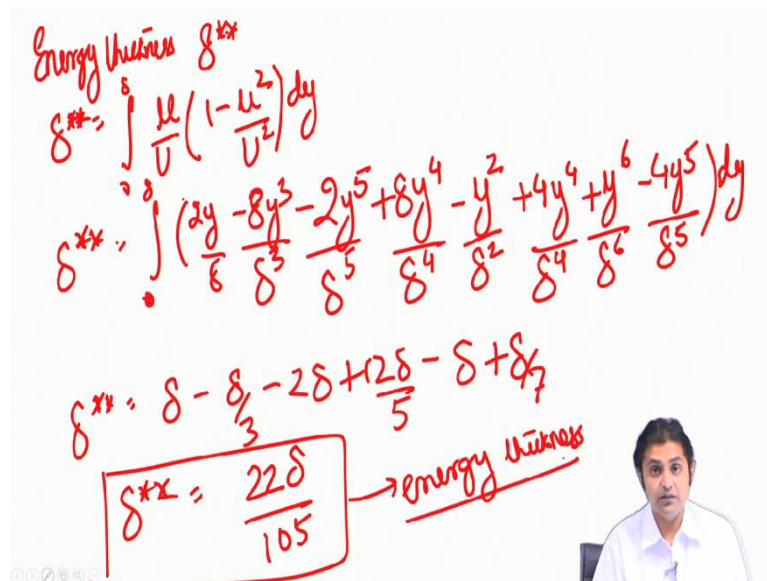 Energy thickness δ**
δ** = ∫₀^δ u/U (1 - u²/U²) dy
δ** = ∫₀^δ (2y/δ - 8y³/δ³ - 2y⁵/δ⁵ + 8y⁴/δ⁴ - y²/δ² + 4y⁴/δ⁴ + y⁶/δ⁶ - 4y⁵/δ⁵) dy
δ** = δ - δ/3 - 2δ + 12δ/5 - δ + δ/7
δ** = 22δ/105 → energy thickness